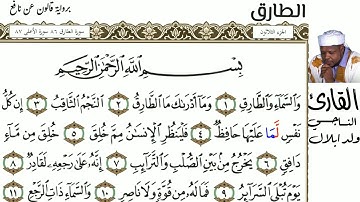 برواية قالون عن نافع
الطارق
سورة الطارق ٨٦ سورة الأعلى ٨٧
الجزء الثلاثون
بِسْمِ اللَّهِ الرَّحْمَٰنِ الرَّحِيمِ
وَالسَّمَاءِ وَالطَّارِقِ ١ وَمَا أَدْرَىٰكَ مَا الطَّارِقُ ٢ النَّجْمُ الثَّاقِبُ ٣ إِن كُلُّ
نَفْسٍ لَّمَا عَلَيْهَا حَافِظٌ ٤ فَلْيَنظُرِ الْإِنسَٰنُ مِمَّ خُلِقَ ٥ خُلِقَ مِن مَّاءٍ
دَافِقٍ ٦ يَخْرُجُ مِنۢ بَيْنِ الصُّلْبِ وَالتَّرَائِبِ ٧ إِنَّهُ عَلَىٰ رَجْعِهِ لَقَادِرٌ ٨
يَوْمَ تُبْلَى السَّرَائِرُ ٩ فَمَا لَهُ مِن قُوَّةٍ وَلَا نَاصِرٍ ١٠ وَالسَّمَاءِ ذَاتِ الرَّجْعِ ١١
القارئ
الناجي
ولد ابلال